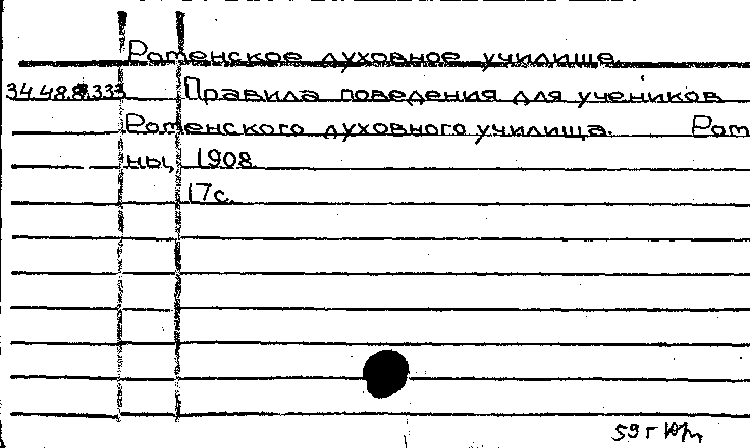 Роменское духовное училище
34.48.8.333 Правила поведения для учеников
Роменского духовного училища. Ром
ны, 1908.
17с.
59 г